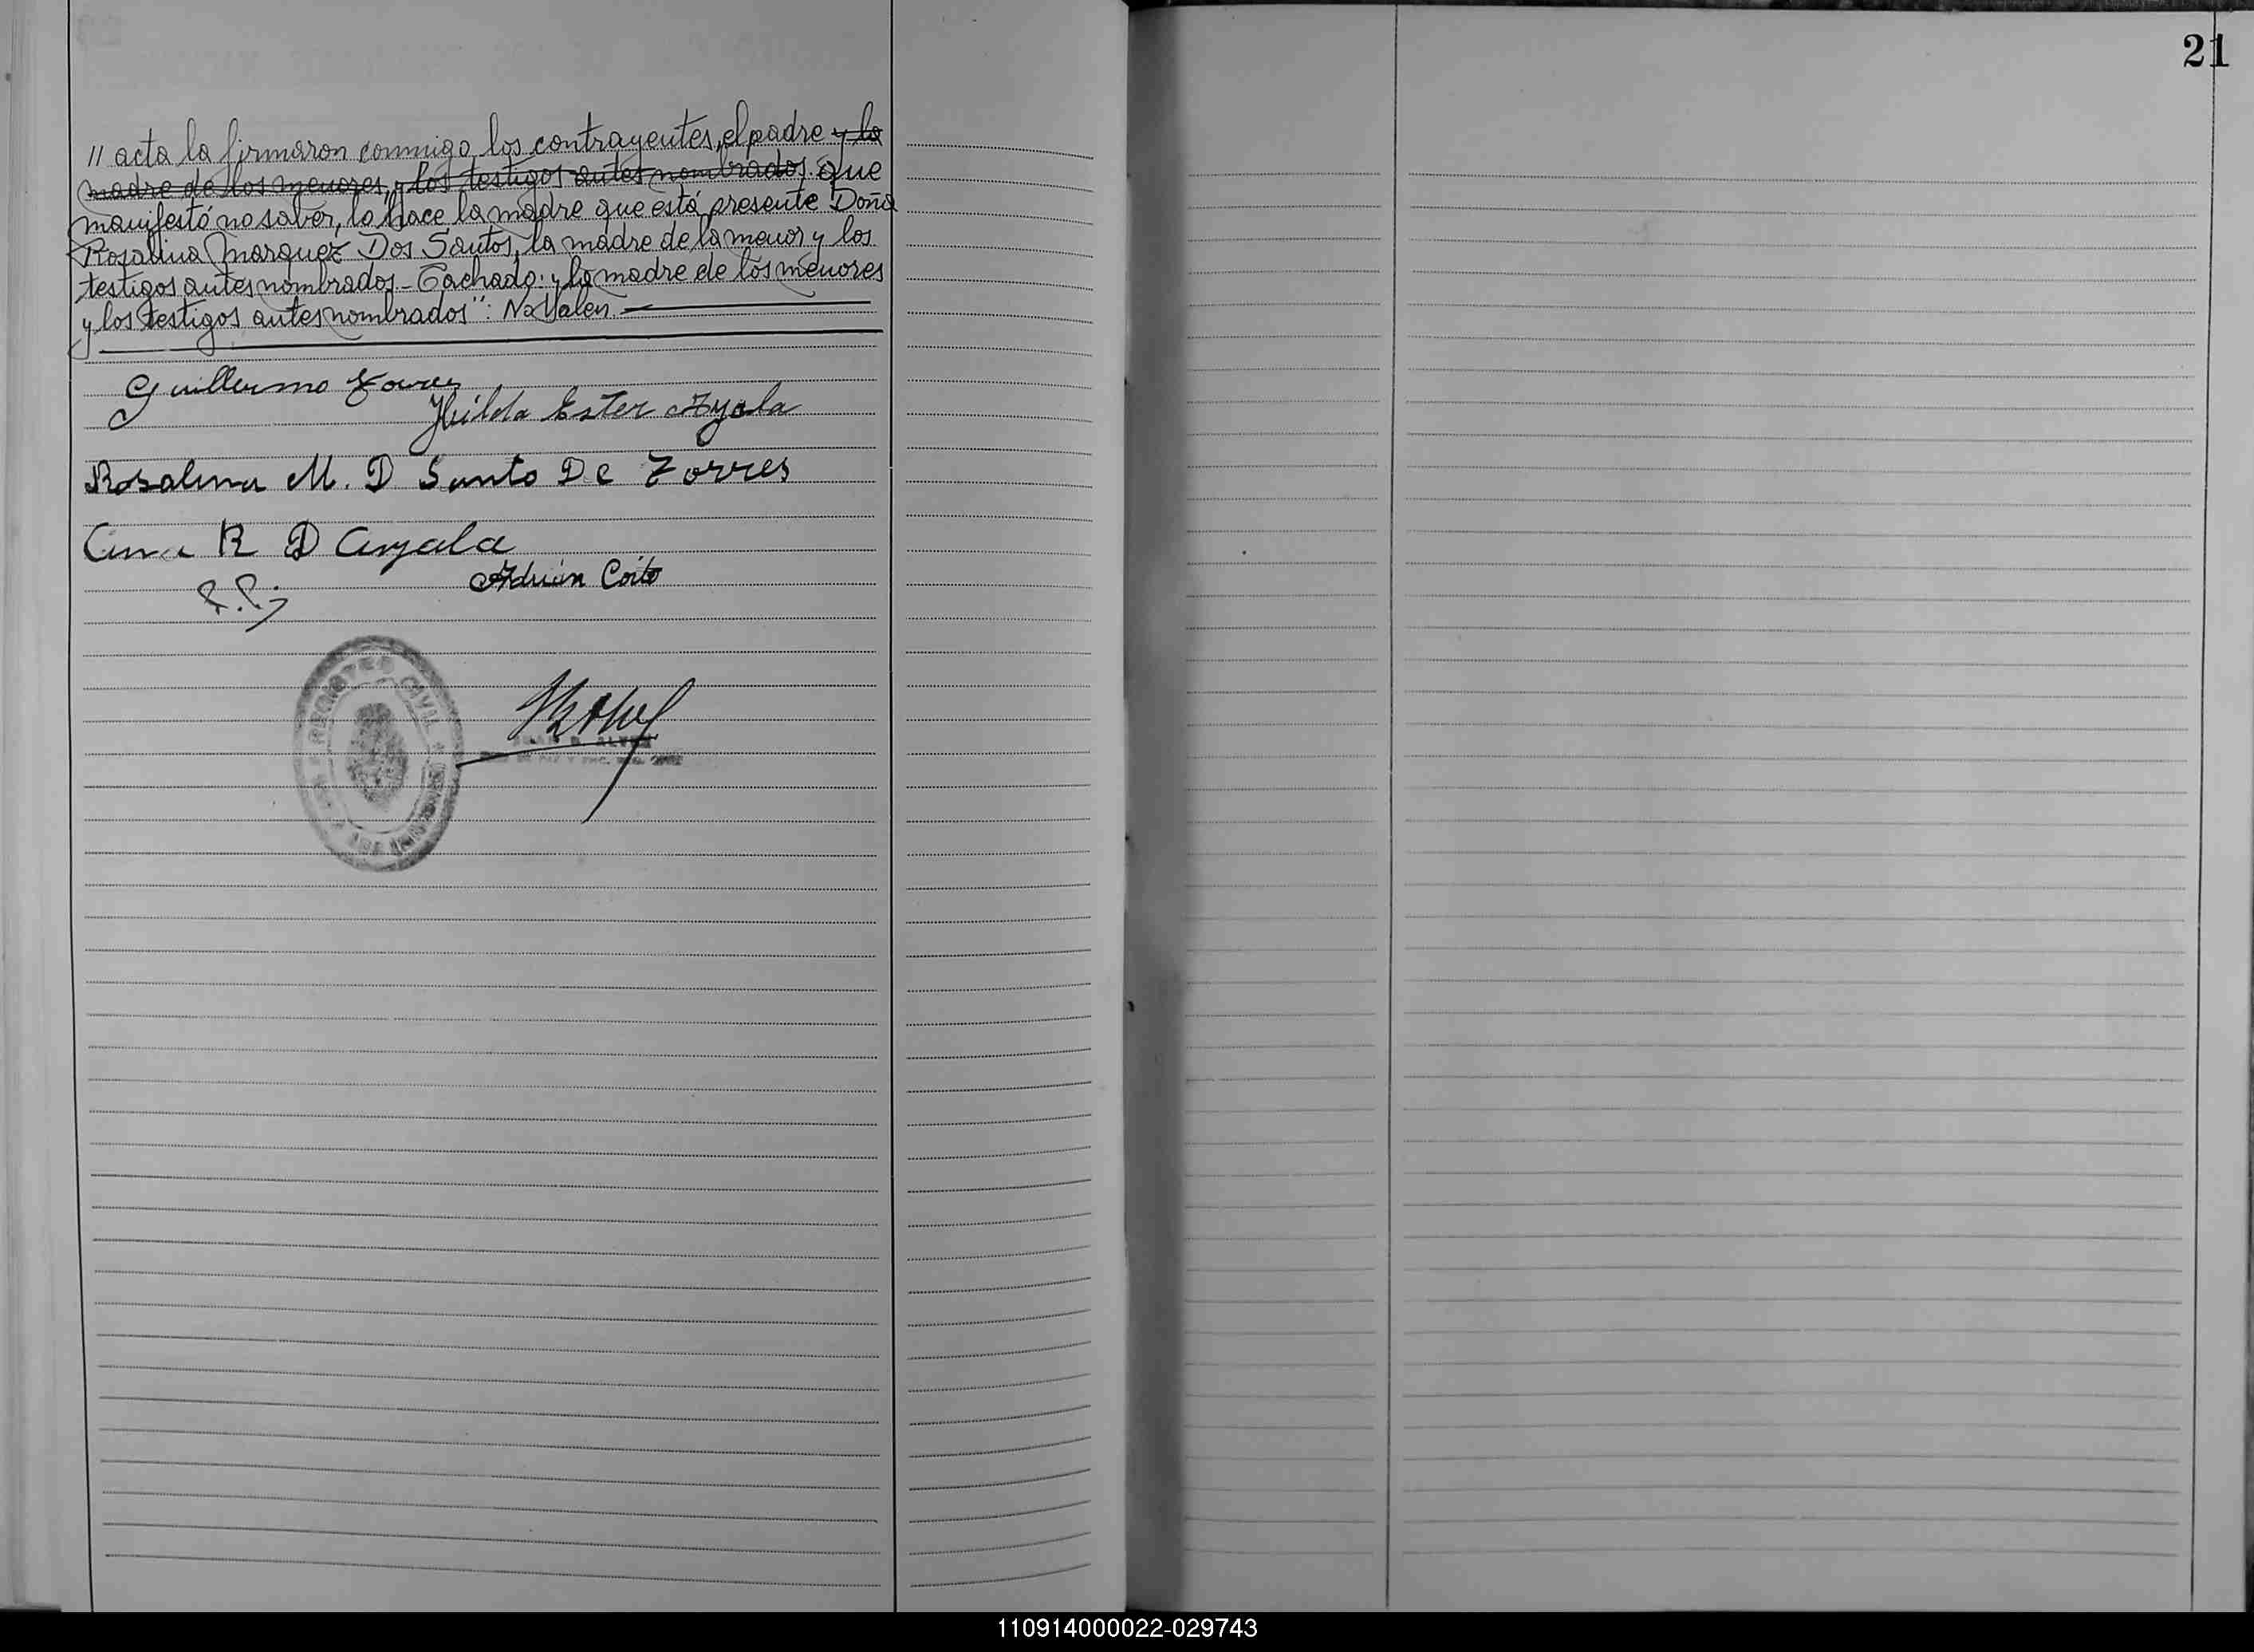 21
// acta la firmaron conmigo, los contrayentes, el padre y la
madre de los menores, y los testigos antes nombrados. que
manifestó no saber, lo hace la madre que está presente Doña
Rosalina Marquez Dos Santos, la madre de la menor y los
testigos antes nombrados - Tachado: "y la madre de los menores
y los testigos antes nombrados": No Valen.
Guillermo Torres
Hilda Ester Ayala
Rosalina M. D Santo De Torres
Ana R D Ayala
Adrián Coito
REGISTRO CIVIL
JUAN B. ALVEZ
110914000022-029743